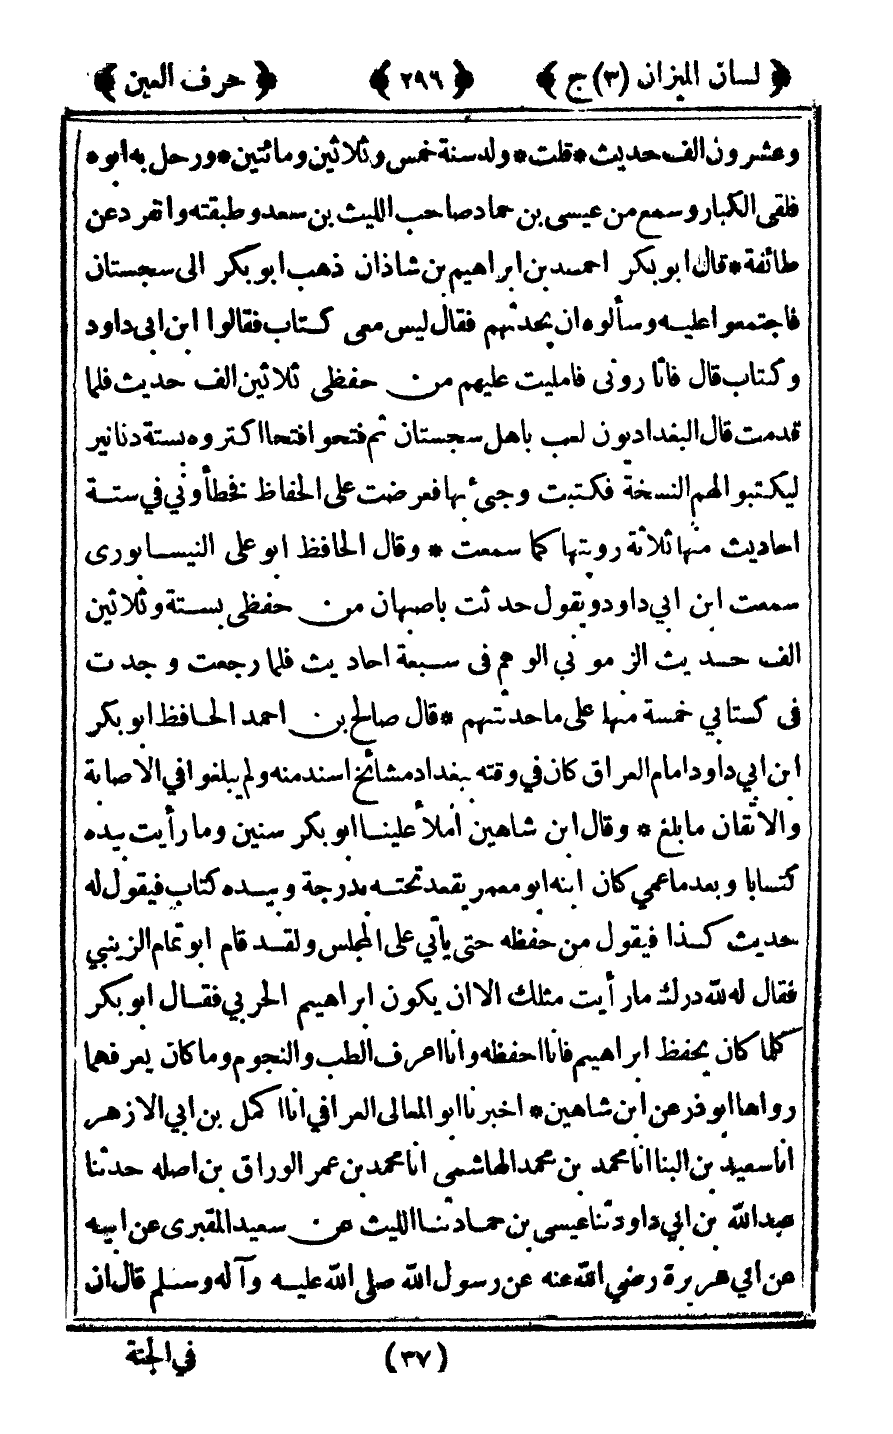 ﴿ لسان الميزان (٣) ج ﴾ ﴿ ٢٩٦ ﴾ ﴿ حرف العين ﴾
وعشرون الف حديث * قلت * ولد سنة خمس وثلاثين ومائتين * ورحل به ابوه
فلقى الكبار وسمع من عيسى بن حماد صاحب الليث بن سعد وطبقته وانفرد عن
طائفة * قال ابو بكر احمد بن ابراهيم بن شاذان ذهب ابو بكر الى سجستان
فاجتمعوا عليه وسألوه ان يحدثهم فقال ليس معى كتاب فقالوا ابن ابى داود
وكتاب قال فاثاروني فامليت عليهم من حفظي ثلاثين الف حديث فلما
قدمت قال البغداديون لعب باهل سجستان ثم فتحوا فتحا اكتروه بستة دنانير
ليكتبوا لهم النسخة فكتبت وجيء بها فعرضت على الحفاظ فخطأوني في ستة
احاديث منها ثلاثة رويتها كما سمعت * وقال الحافظ ابو على النيسابورى
سمعت ابن ابي داود يقول حدثت باصبهان من حفظي بستة وثلاثين
الف حديث الزموني الوهم فى سبعة احاديث فلما رجعت وجدت
فى كتابي خمسة منها على ما حدثتهم * قال صالح بن احمد الحافظ ابو بكر
ابن ابي داود امام العراق كان في وقته ببغداد مشائخ اسند منه ولم يبلغوا في الاصابة
والاتقان ما بلغ * وقال ابن شاهين املأ علينا ابو بكر سنين وما رأيت بيده
كتابا وبعد ما عمي كان ابنه ابو معمر يقعد تحته بدرجة وبيده كتاب فيقول له
حديث كذا فيقول من حفظه حتى يأتي على المجلس ولقد قام ابو تمام الزينبي
فقال له لله درك ما رأيت مثلك الا ان يكون ابراهيم الحربي فقال ابو بكر
كلما كان يحفظ ابراهيم فانا احفظه وانا اعرف الطب والنجوم وما كان يعرفهما
رواها ابو ذر عن ابن شاهين * اخبرنا ابو المعالى العرافي انا اكمل بن ابي الازهر
انا سعيد بن البنا انا محمد بن محمد الهاشمى انا محمد بن عمر الوراق بن اصله حدثنا
عبد الله بن ابي داود ثنا عيسى بن حماد ثنا الليث عن سعيد المقبرى عن ابيه
عن ابي هريرة رضي الله عنه عن رسول الله صلى الله عليه وآله وسلم قال ان
(٣٧) في الجنة